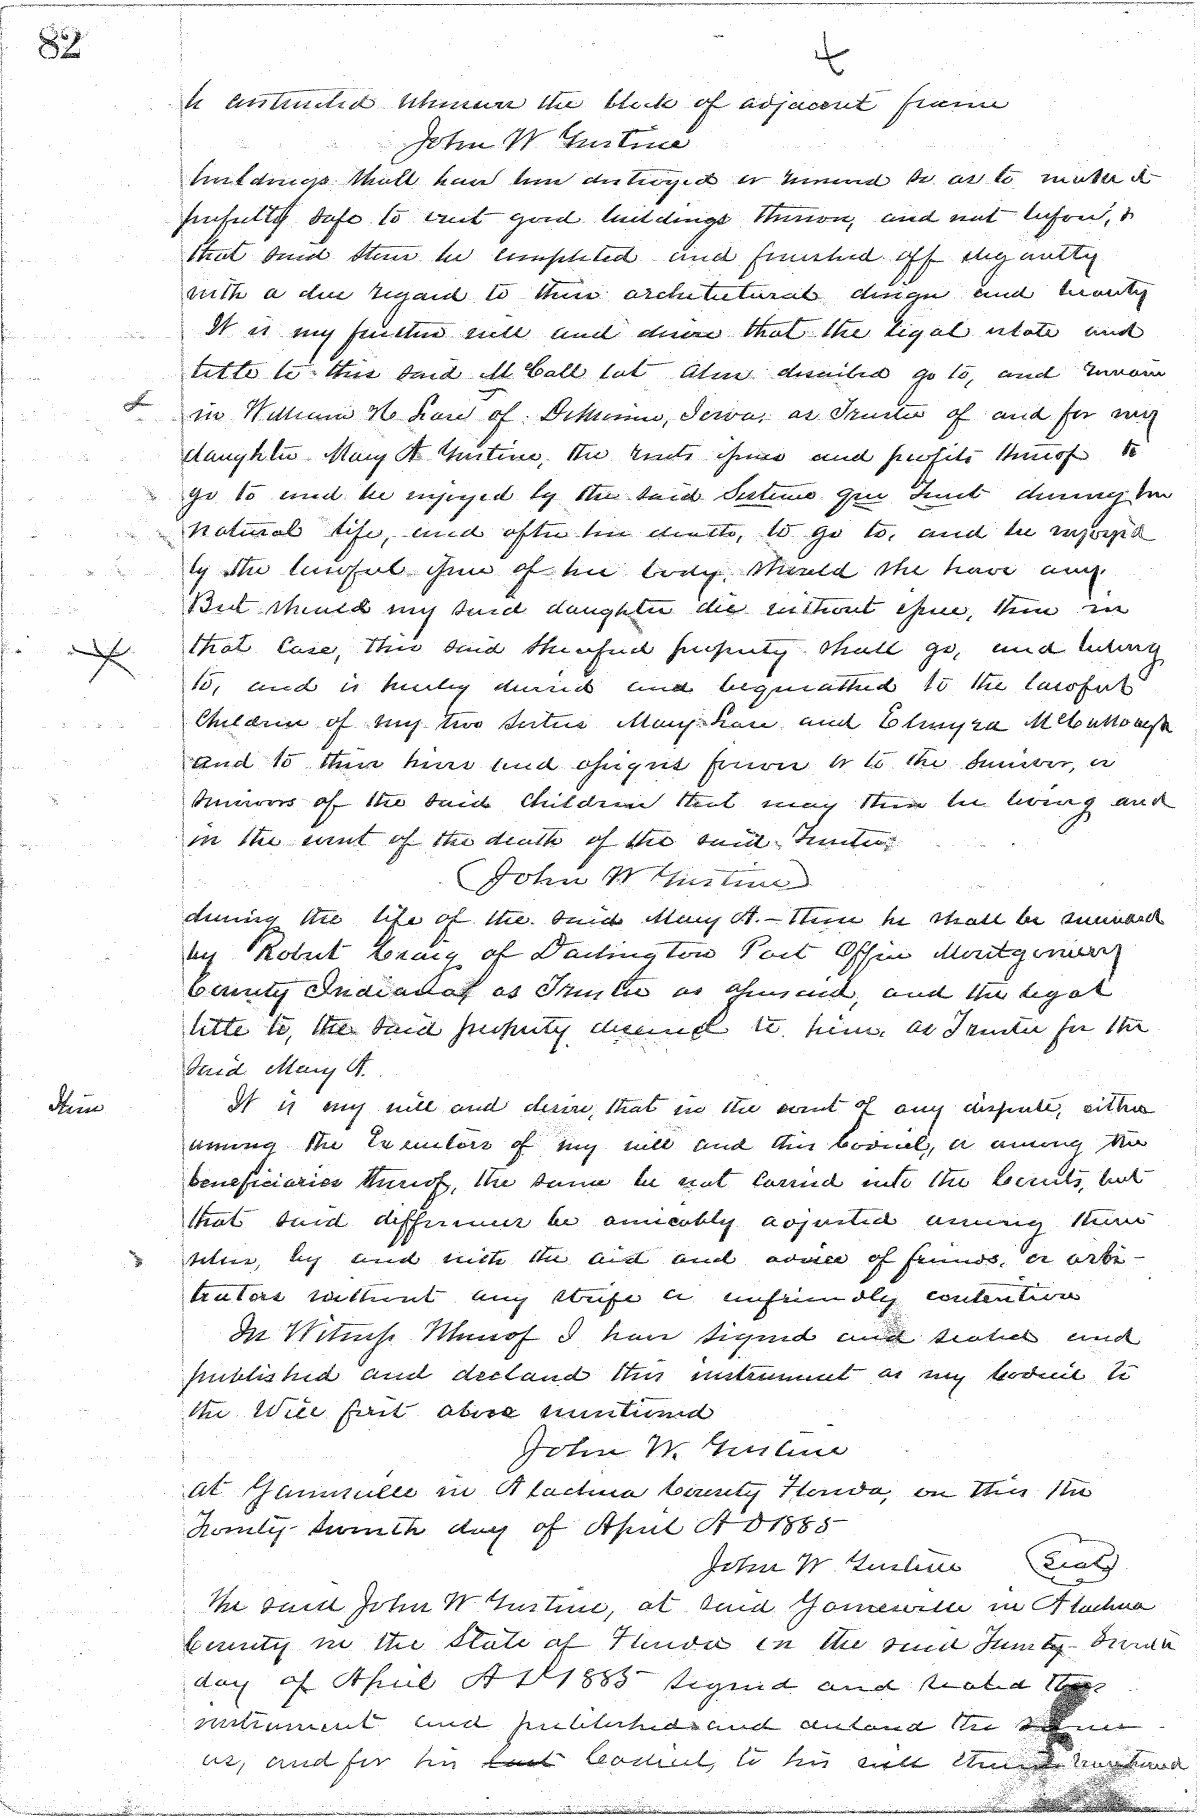 82
be constructed whenever the block of adjacent frame
John W Gustine
buildings shall have been destroyed or removed so as to make it
perfectly safe to erect good buildings thereon, and not before, &
that said Stores be completed and finished off elegantly
with a due regard to their architectural design and beauty
It is my further will and desire that the legal estate and
title to this said McCall lot above described go to, and remain
in William H of DeMoine, Iowa, as Trustee of and for my
daughter Mary A Gustine, the rents issues and profits thereof to
go to and be enjoyed by the said Sestine que Trust during her
natural life, and after her death, to go to, and be enjoyed
by the lawful issue of her body, should she have any.
But should my said daughter die without issue, then in
that Case, this said property shall go, and belong
to, and is hereby devised and bequeathed to the lawful
Children of my two Sisters Mary and Elmyra McCullough
and to their heirs and assigns forever or to the Survivor, or
survivors of the said Children that may then be living and
in the event of the death of the said Trustee,
(John W Gustine)
during the life of the said Mary A. - then he shall be succeeded
by Robert Craig of Darlington Post Office Montgomery
County Indiana as Trustee as aforesaid, and the legal
title to, the said property descend to him as Trustee for the
said Mary A.
Item It is my will and desire, that in the event of any dispute, either
among the Executors of my will and this Codicil, or among the
beneficiaries thereof, the same be not carried into the Courts, but
that said differences be amicably adjusted among them
selves, by and with the aid and advice of friends, or arbi-
trators without any strife or unfriendly contention
In Witness Whereof I have signed and sealed and
published and declared this instrument as my Codicil to
the Will first above mentioned
John W. Gustine
at Gainesville in Alachua County Florida, on this the
Twenty-Seventh day of April A D 1885
John W Gustine (Seal)
The said John W Gustine, at said Gainesville in Alachua
County in the State of Florida on the said Twenty-Seventh
day of April A D 1885 signed and sealed this
instrument and published and declared the same
as, and for his last Codicil, to his will